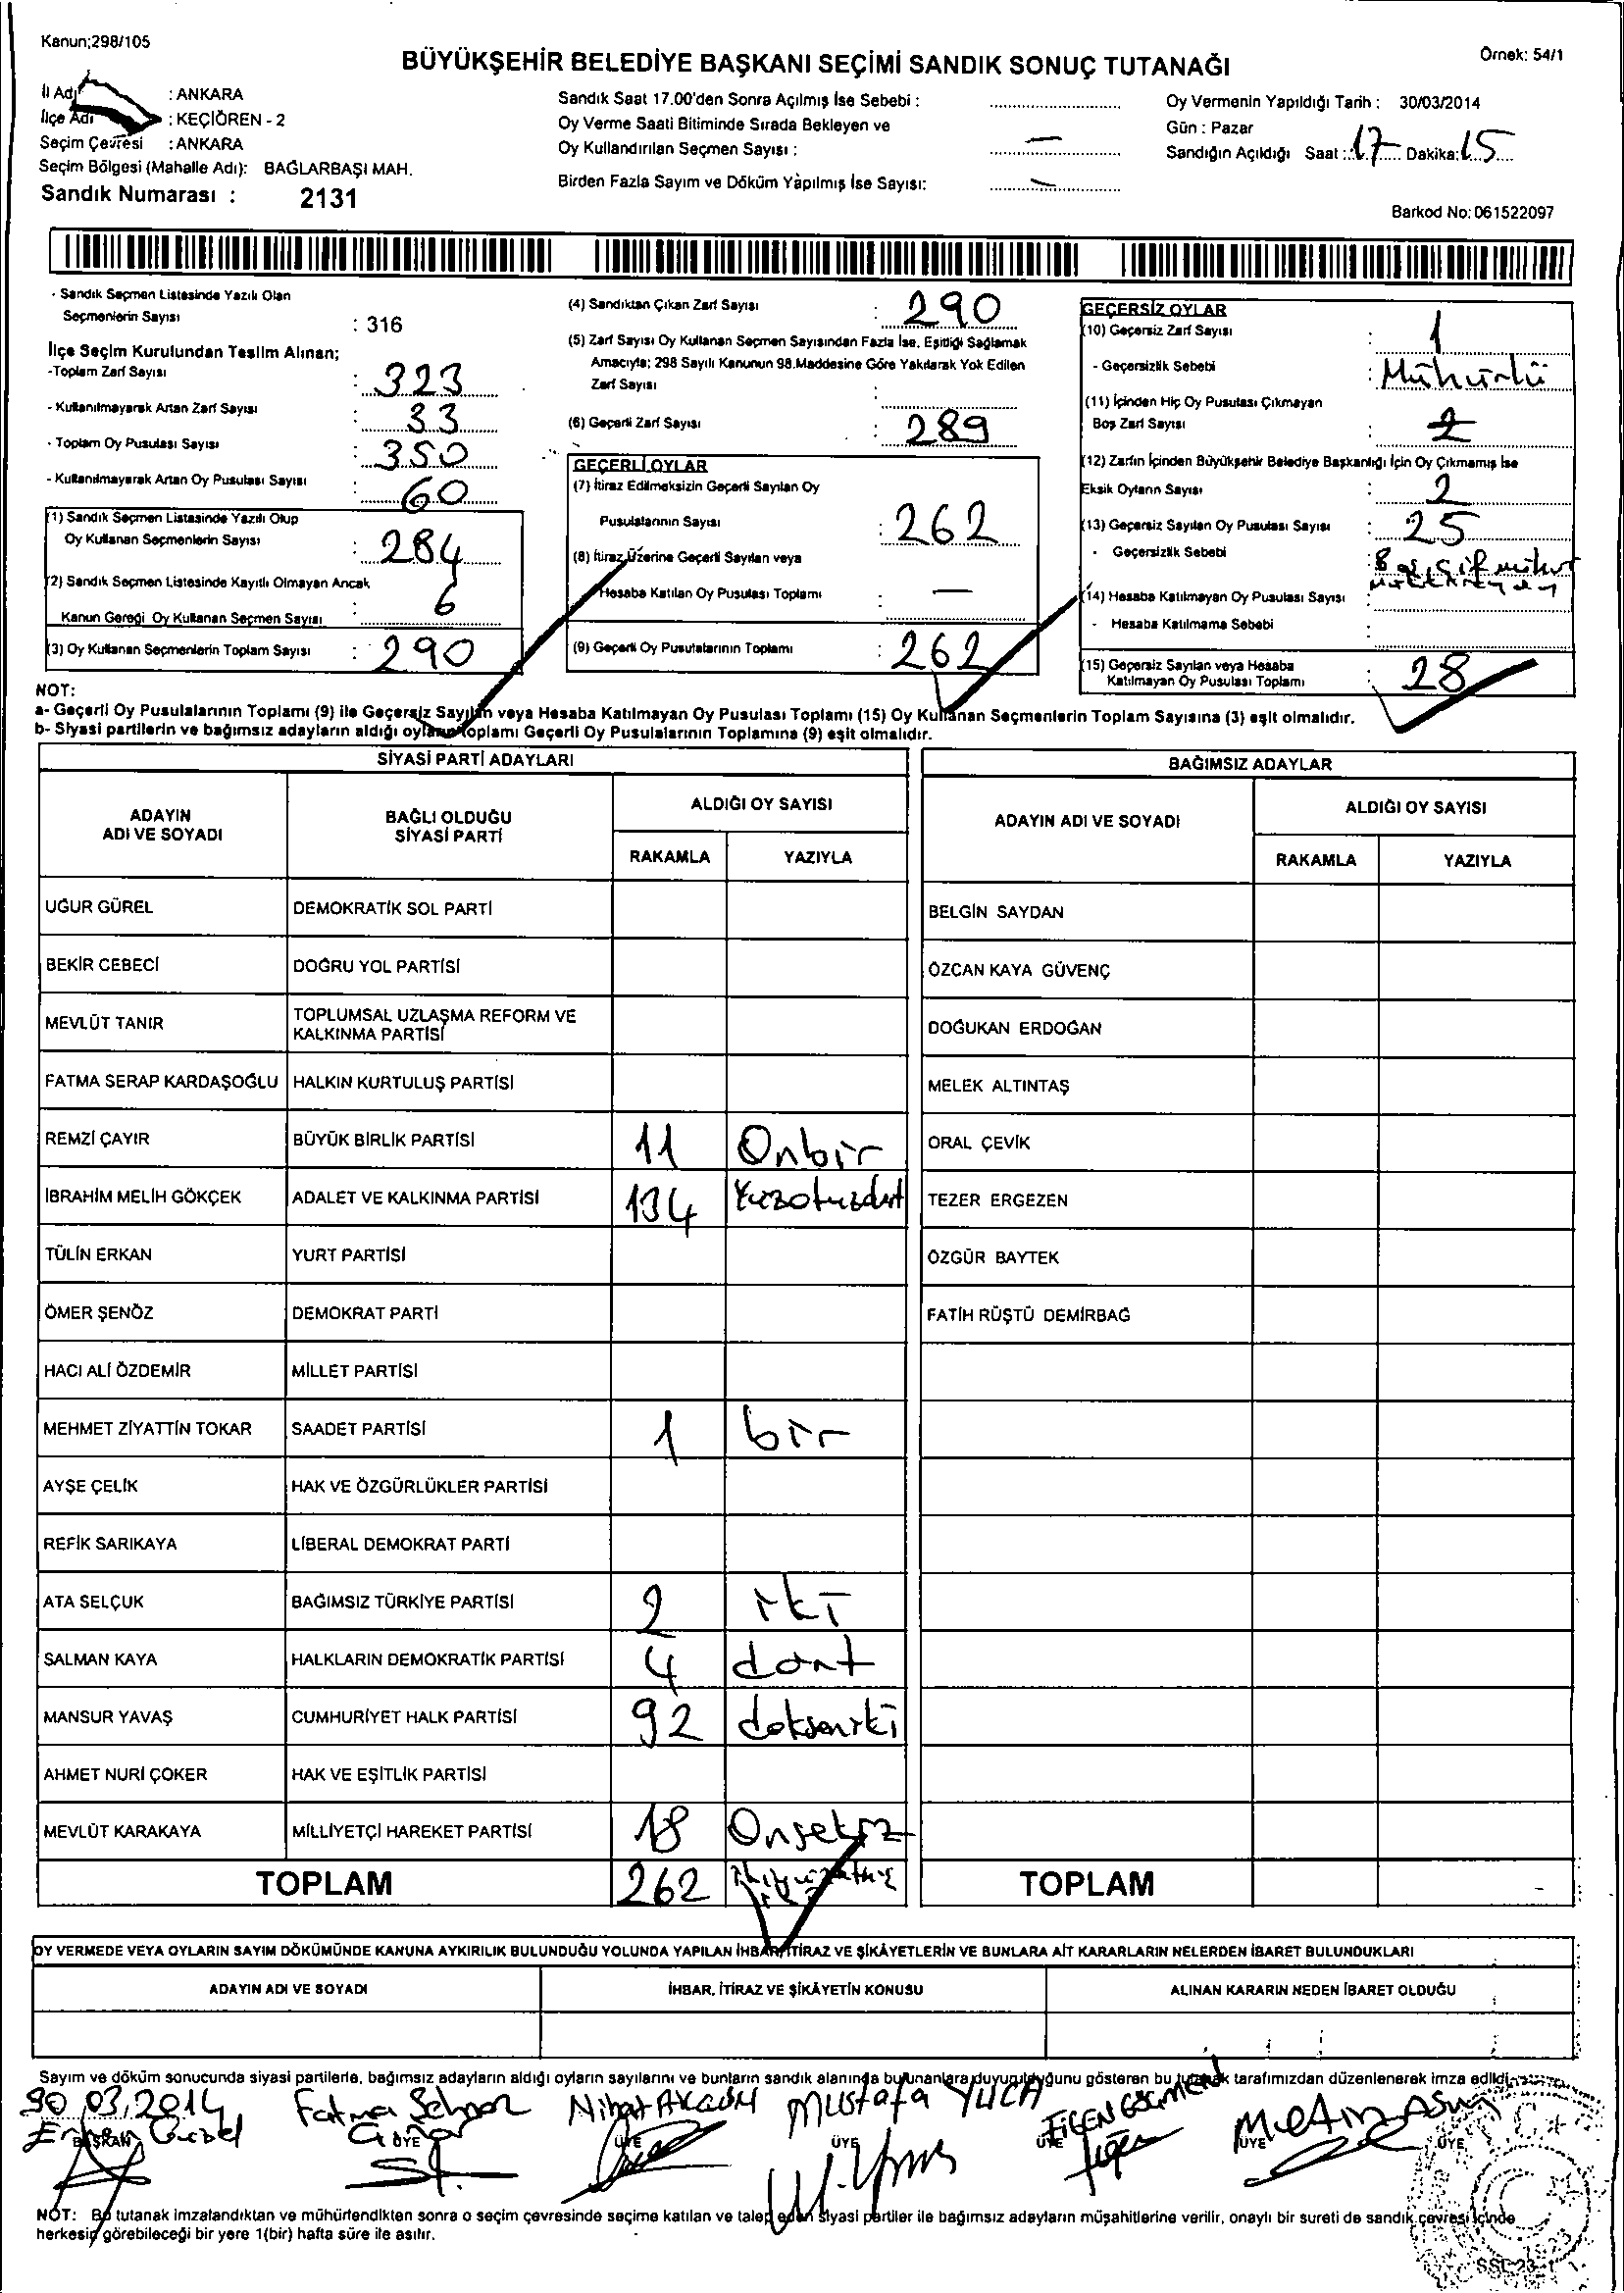 Kanun;298/105
Örnek: 54/1
BÜYÜKŞEHİR BELEDİYE BAŞKANI SEÇİMİ SANDIK SONUÇ TUTANAĞI
İl Adı : ANKARA
İlçe Adı : KEÇİÖREN - 2
Seçim Çevresi : ANKARA
Seçim Bölgesi (Mahalle Adı): BAĞLARBAŞI MAH.
Sandık Numarası : 2131
Sandık Saat 17.00'den Sonra Açılmış İse Sebebi :
Oy Verme Saati Bitiminde Sırada Bekleyen ve
Oy Kullandırılan Seçmen Sayısı : —
Birden Fazla Sayım ve Döküm Yapılmış İse Sayısı: —
Oy Vermenin Yapıldığı Tarih : 30/03/2014
Gün : Pazar
Sandığın Açıldığı Saat : 17 Dakika: 15
Barkod No: 061522097
- Sandık Seçmen Listesinde Yazılı Olan
Seçmenlerin Sayısı : 316
İlçe Seçim Kurulundan Teslim Alınan;
-Toplam Zarf Sayısı : 323
- Kullanılmayarak Artan Zarf Sayısı : 33
- Toplam Oy Pusulası Sayısı : 350
- Kullanılmayarak Artan Oy Pusulası Sayısı : 60
(1) Sandık Seçmen Listesinde Yazılı Olup
Oy Kullanan Seçmenlerin Sayısı : 284
(2) Sandık Seçmen Listesinde Kayıtlı Olmayan Ancak
Kanun Gereği Oy Kullanan Seçmen Sayısı : 6
(3) Oy Kullanan Seçmenlerin Toplam Sayısı : 290
(4) Sandıktan Çıkan Zarf Sayısı : 290
(5) Zarf Sayısı Oy Kullanan Seçmen Sayısından Fazla İse, Eşitliği Sağlamak
Amacıyla; 298 Sayılı Kanunun 98.Maddesine Göre Yakılarak Yok Edilen
Zarf Sayısı :
(6) Geçerli Zarf Sayısı : 289
GEÇERLİ OYLAR
(7) İtiraz Edilmeksizin Geçerli Sayılan Oy
Pusulalarının Sayısı : 262
(8) İtiraz Üzerine Geçerli Sayılan veya
Hesaba Katılan Oy Pusulası Toplamı : —
(9) Geçerli Oy Pusulalarının Toplamı : 262
GEÇERSİZ OYLAR
(10) Geçersiz Zarf Sayısı : 1
- Geçersizlik Sebebi : Mühürlü
(11) İçinden Hiç Oy Pusulası Çıkmayan
Boş Zarf Sayısı : 2
(12) Zarfın İçinden Büyükşehir Belediye Başkanlığı İçin Oy Çıkmamış İse
Eksik Oyların Sayısı : 2
(13) Geçersiz Sayılan Oy Pusulası Sayısı : 25
- Geçersizlik Sebebi :
(14) Hesaba Katılmayan Oy Pusulası Sayısı :
- Hesaba Katılmama Sebebi :
(15) Geçersiz Sayılan veya Hesaba
Katılmayan Oy Pusulası Toplamı : 28
NOT:
a- Geçerli Oy Pusulalarının Toplamı (9) ile Geçersiz Sayılan veya Hesaba Katılmayan Oy Pusulası Toplamı (15) Oy Kullanan Seçmenlerin Toplam Sayısına (3) eşit olmalıdır.
b- Siyasi partilerin ve bağımsız adayların aldığı oyların toplamı Geçerli Oy Pusulalarının Toplamına (9) eşit olmalıdır.
SİYASİ PARTİ ADAYLARI
ADAYIN ADI VE SOYADI BAĞLI OLDUĞU SİYASİ PARTİ ALDIĞI OY SAYISI
RAKAMLA YAZIYLA
UĞUR GÜREL DEMOKRATİK SOL PARTİ
BEKİR CEBECİ DOĞRU YOL PARTİSİ
MEVLÜT TANIR TOPLUMSAL UZLAŞMA REFORM VE KALKINMA PARTİSİ
FATMA SERAP KARDAŞOĞLU HALKIN KURTULUŞ PARTİSİ
REMZİ ÇAYIR BÜYÜK BİRLİK PARTİSİ 11 Onbir
İBRAHİM MELİH GÖKÇEK ADALET VE KALKINMA PARTİSİ 134 Yüzotuzdört
TÜLİN ERKAN YURT PARTİSİ
ÖMER ŞENÖZ DEMOKRAT PARTİ
HACI ALİ ÖZDEMİR MİLLET PARTİSİ
MEHMET ZİYATTİN TOKAR SAADET PARTİSİ 1 bir
AYŞE ÇELİK HAK VE ÖZGÜRLÜKLER PARTİSİ
REFİK SARIKAYA LİBERAL DEMOKRAT PARTİ
ATA SELÇUK BAĞIMSIZ TÜRKİYE PARTİSİ 2 iki
SALMAN KAYA HALKLARIN DEMOKRATİK PARTİSİ 4 dört
MANSUR YAVAŞ CUMHURİYET HALK PARTİSİ 92 doksaniki
AHMET NURİ ÇOKER HAK VE EŞİTLİK PARTİSİ
MEVLÜT KARAKAYA MİLLİYETÇİ HAREKET PARTİSİ 18 Onsekiz
TOPLAM 262
BAĞIMSIZ ADAYLAR
ADAYIN ADI VE SOYADI ALDIĞI OY SAYISI
RAKAMLA YAZIYLA
BELGİN SAYDAN
ÖZCAN KAYA GÜVENÇ
DOĞUKAN ERDOĞAN
MELEK ALTINTAŞ
ORAL ÇEVİK
TEZER ERGEZEN
ÖZGÜR BAYTEK
FATİH RÜŞTÜ DEMİRBAĞ
TOPLAM
OY VERMEDE VEYA OYLARIN SAYIM DÖKÜMÜNDE KANUNA AYKIRILIK BULUNDUĞU YOLUNDA YAPILAN İHBAR, İTİRAZ VE ŞİKÂYETLERİN VE BUNLARA AİT KARARLARIN NELERDEN İBARET BULUNDUKLARI
ADAYIN ADI VE SOYADI İHBAR, İTİRAZ VE ŞİKÂYETİN KONUSU ALINAN KARARIN NEDEN İBARET OLDUĞU
Sayım ve döküm sonucunda siyasi partilerle, bağımsız adayların aldığı oyların sayılarını ve bunların sandık alanında bulunanlara duyurulduğunu gösteren bu tutanak tarafımızdan düzenlenerek imza edildi.
30.03.2014 Fatma Nihat Mustafa YUCA FİGEN Metin
BAŞKAN ÜYE ÜYE ÜYE ÜYE ÜYE ÜYE
NOT: Bu tutanak imzalandıktan ve mühürlendikten sonra o seçim çevresinde seçime katılan ve talep eden siyasi partiler ile bağımsız adayların müşahitlerine verilir, onaylı bir sureti de sandık çevresi içinde
herkesin görebileceği bir yere 1(bir) hafta süre ile asılır.